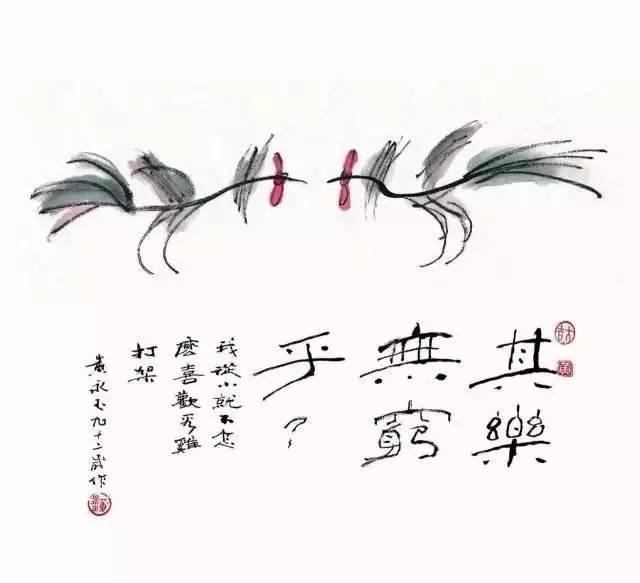 其樂
無窮
乎?
我從小就不怎
麼喜歡看雞
打架
黃永玉九十二歲作